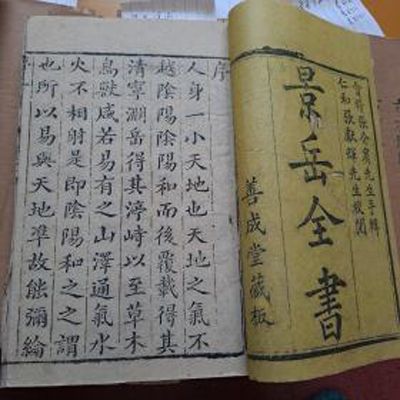 會稽張介賓先生手輯
仁和張獻輝先生較閱
景岳全書
善成堂藏板
序
人身一小天地也天地之氣不
越陰陽陰陽和而後覆載得其
清寧淵岳得其渟峙以至草木
鳥獸咸若易有之山澤通氣水
火不相射是即陰陽和之之謂
也所以易與天地準故能彌綸